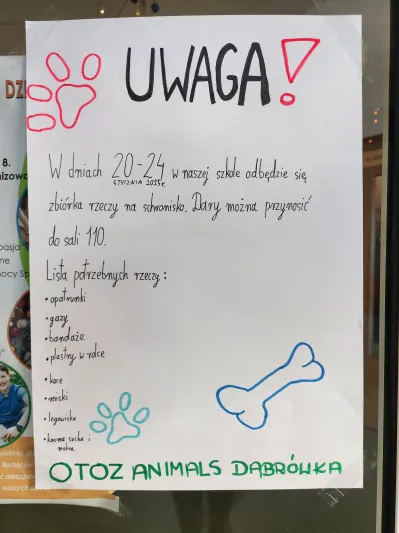 UWAGA!
W dniach 20-24 w naszej szkole odbędzie się
STYCZNIA 2025r.
zbiórka rzeczy na schronisko. Dary można przynosić
do sali 110.
Lista potrzebnych rzeczy:
• opatrunki
• gazy
• bandaże
• plastry w rolce
• koce
• miski
• legowiska
• karma sucha i
mokra
OTOZ ANIMALS DĄBRÓWKA
8.